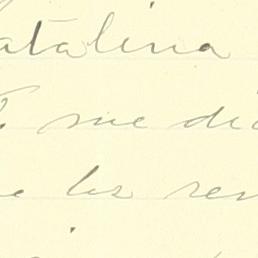 atalina
me di
los ren